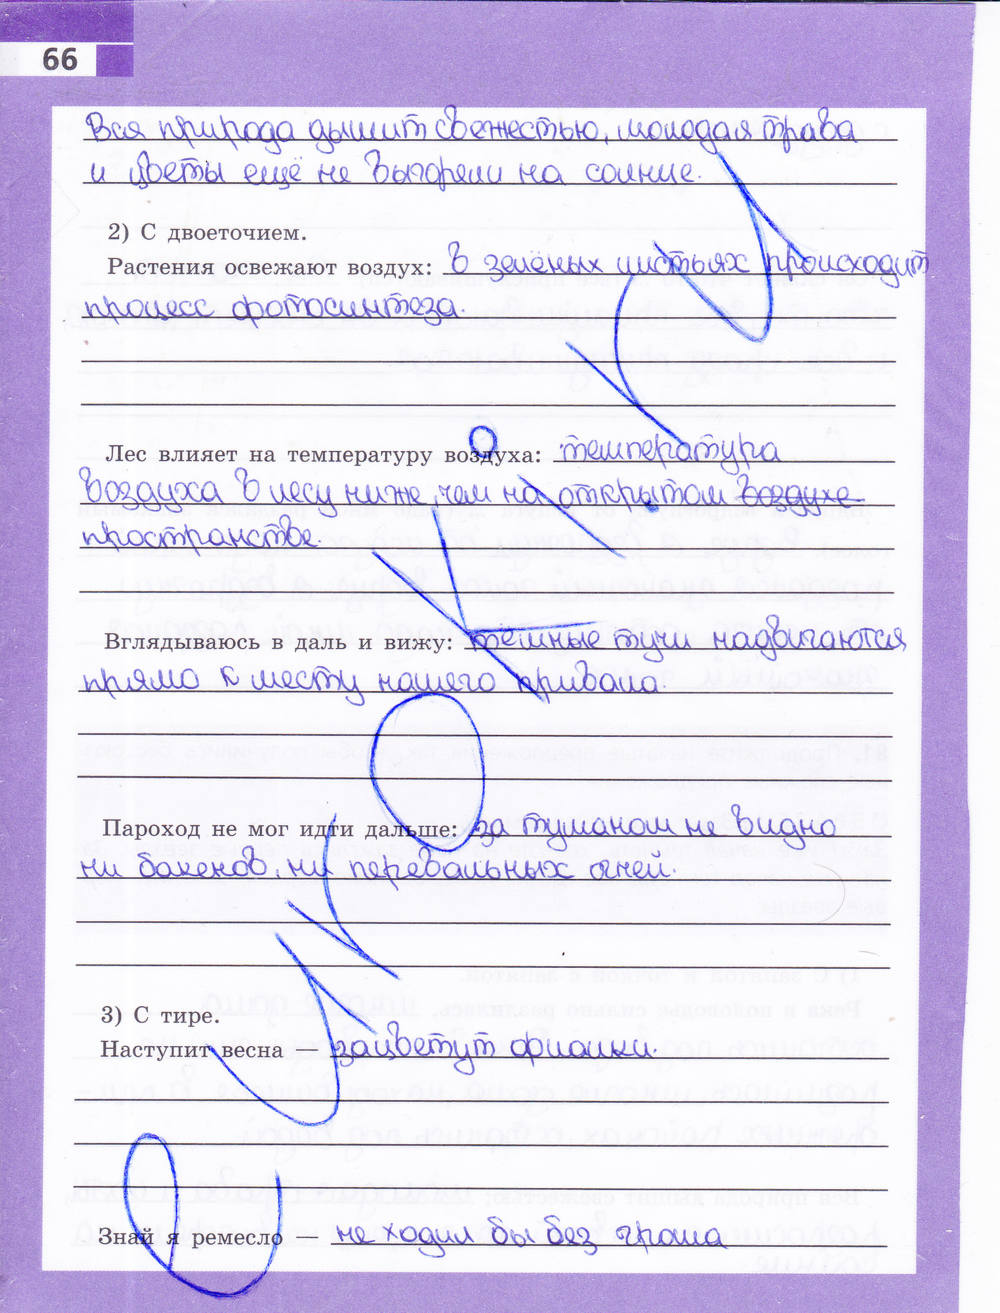 66
Вся природа дышит свежестью, молодая трава
и цветы ещё не выгорели на солнце.
2) С двоеточием.
Растения освежают воздух: в зелёных листьях происходит
процесс фотосинтеза.
Лес влияет на температуру воздуха: температура
воздуха в лесу ниже, чем на открытом воздухе
пространстве.
Вглядываюсь в даль и вижу: тёмные тучи надвигаются
прямо к месту нашего привала.
Пароход не мог идти дальше: за туманом не видно
ни бакенов, ни перевальных огней.
3) С тире.
Наступит весна — зацветут фиалки.
Знай я ремесло — не ходил бы без гроша